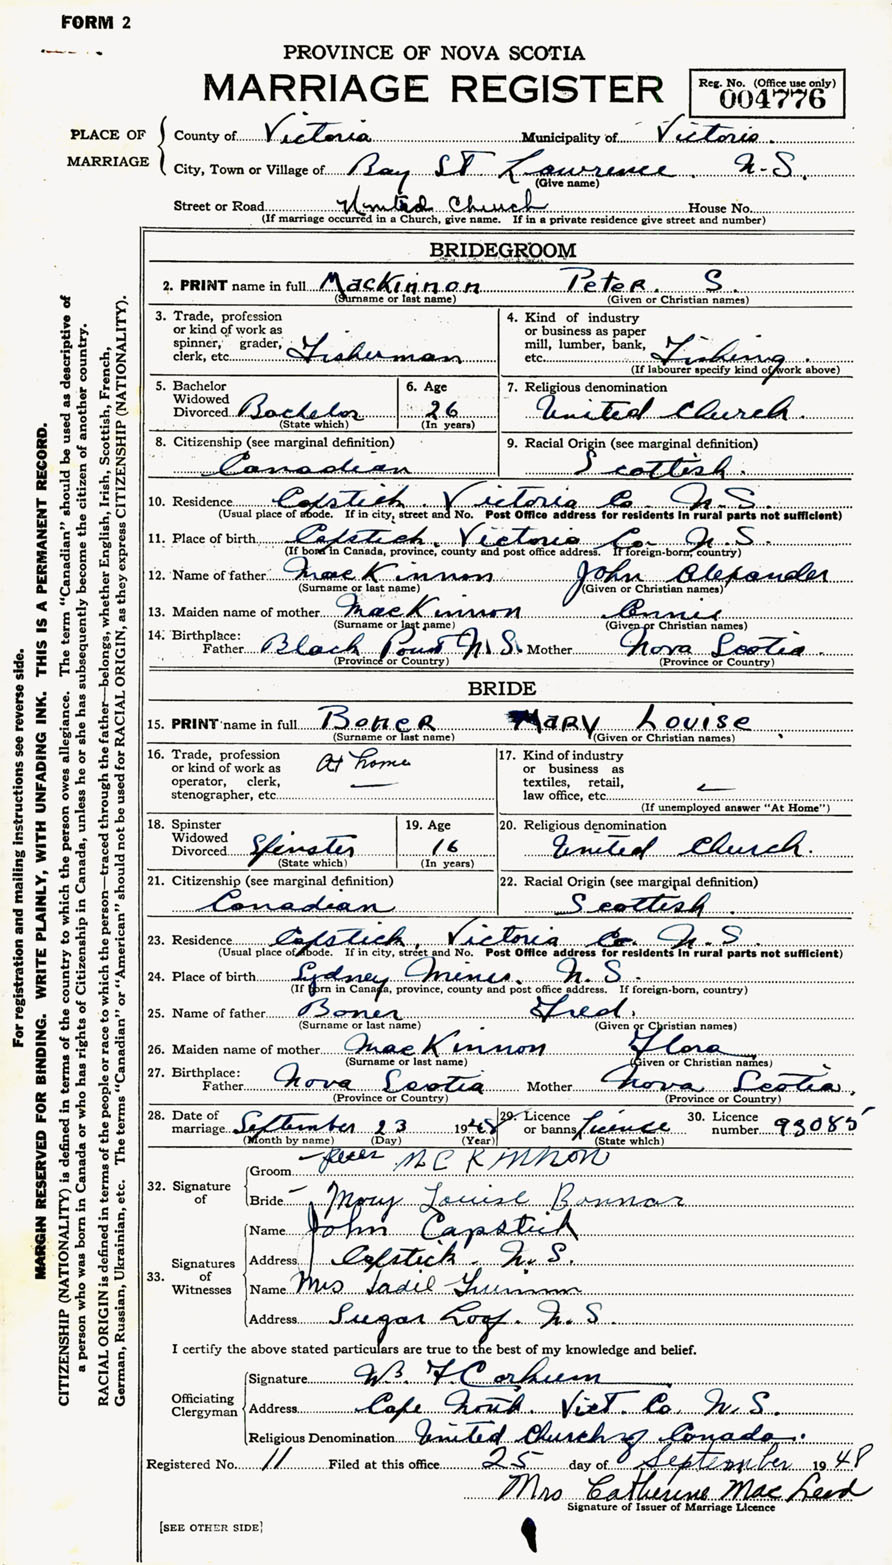 FORM 2
PROVINCE OF NOVA SCOTIA
MARRIAGE REGISTER
Reg. No. (Office use only)
004776
PLACE OF MARRIAGE
County of Victoria Municipality of Victoria.
City, Town or Village of Bay St Lawrence. N.S.
(Give name)
Street or Road United Church House No.
(If marriage occurred in a Church, give name. If in a private residence give street and number)
BRIDEGROOM
2. PRINT name in full MacKinnon Peter. S.
(Surname or last name) (Given or Christian names)
3. Trade, profession or kind of work as spinner, grader, clerk, etc. Fisherman
4. Kind of industry or business as paper mill, lumber, bank, etc. Fishing.
(If labourer specify kind of work above)
5. Bachelor Widowed Divorced Bachelor
(State which)
6. Age 26
(In years)
7. Religious denomination
United Church.
8. Citizenship (see marginal definition)
Canadian
9. Racial Origin (see marginal definition)
Scottish.
10. Residence Capstick, Victoria Co. N.S.
(Usual place of abode. If in city, street and No. Post Office address for residents in rural parts not sufficient)
11. Place of birth Capstick, Victoria Co. N.S.
(If born in Canada, province, county and post office address. If foreign-born, country)
12. Name of father MacKinnon John Alexander
(Surname or last name) (Given or Christian names)
13. Maiden name of mother MacKinnon Annie
(Surname or last name) (Given or Christian names)
14. Birthplace: Father Black Point N.S. Mother Nova Scotia
(Province or Country) (Province or Country)
BRIDE
15. PRINT name in full Boner Mary Louise
(Surname or last name) (Given or Christian names)
16. Trade, profession or kind of work as operator, clerk, stenographer, etc. At home
17. Kind of industry or business as textiles, retail, law office, etc.
(If unemployed answer "At Home")
18. Spinster Widowed Divorced Spinster
(State which)
19. Age 16
(In years)
20. Religious denomination
United Church.
21. Citizenship (see marginal definition)
Canadian
22. Racial Origin (see marginal definition)
Scottish.
23. Residence Capstick, Victoria Co. N.S.
(Usual place of abode. If in city, street and No. Post Office address for residents in rural parts not sufficient)
24. Place of birth Sydney Mines, N.S.
(If born in Canada, province, county and post office address. If foreign-born, country)
25. Name of father Boner Fred.
(Surname or last name) (Given or Christian names)
26. Maiden name of mother MacKinnon Flora
(Surname or last name) (Given or Christian names)
27. Birthplace: Father Nova Scotia Mother Nova Scotia,
(Province or Country) (Province or Country)
28. Date of marriage September 23 1948 29. Licence or banns Licence 30. Licence number 93085
(Month by name) (Day) (Year) (State which)
32. Signature of
Groom Peter McKinnon
Bride Mary Louise Bonnar
33. Signatures of Witnesses
Name John Capstick
Address Capstick. N.S.
Name Mrs
Address Sugar Loaf. N.S.
I certify the above stated particulars are true to the best of my knowledge and belief.
Officiating Clergyman
Signature W. F. Corkum
Address Cape North. Vict. Co. N.S.
Religious Denomination United Church of Canada.
Registered No. 11 Filed at this office 25 day of September 1948
Mrs Catherine MacLeod
Signature of Issuer of Marriage Licence
[SEE OTHER SIDE]
For registration and mailing instructions see reverse side.
MARGIN RESERVED FOR BINDING. WRITE PLAINLY, WITH UNFADING INK. THIS IS A PERMANENT RECORD.
CITIZENSHIP (NATIONALITY) is defined in terms of the country to which the person owes allegiance. The term "Canadian" should be used as descriptive of
a person who was born in Canada or who has rights of Citizenship in Canada, unless he or she has subsequently become the citizen of another country.
RACIAL ORIGIN is defined in terms of the people or race to which the person—traced through the father—belongs, whether English, Irish, Scottish, French,
German, Russian, Ukrainian, etc. The terms "Canadian" or "American" should not be used for RACIAL ORIGIN, as they express CITIZENSHIP (NATIONALITY).